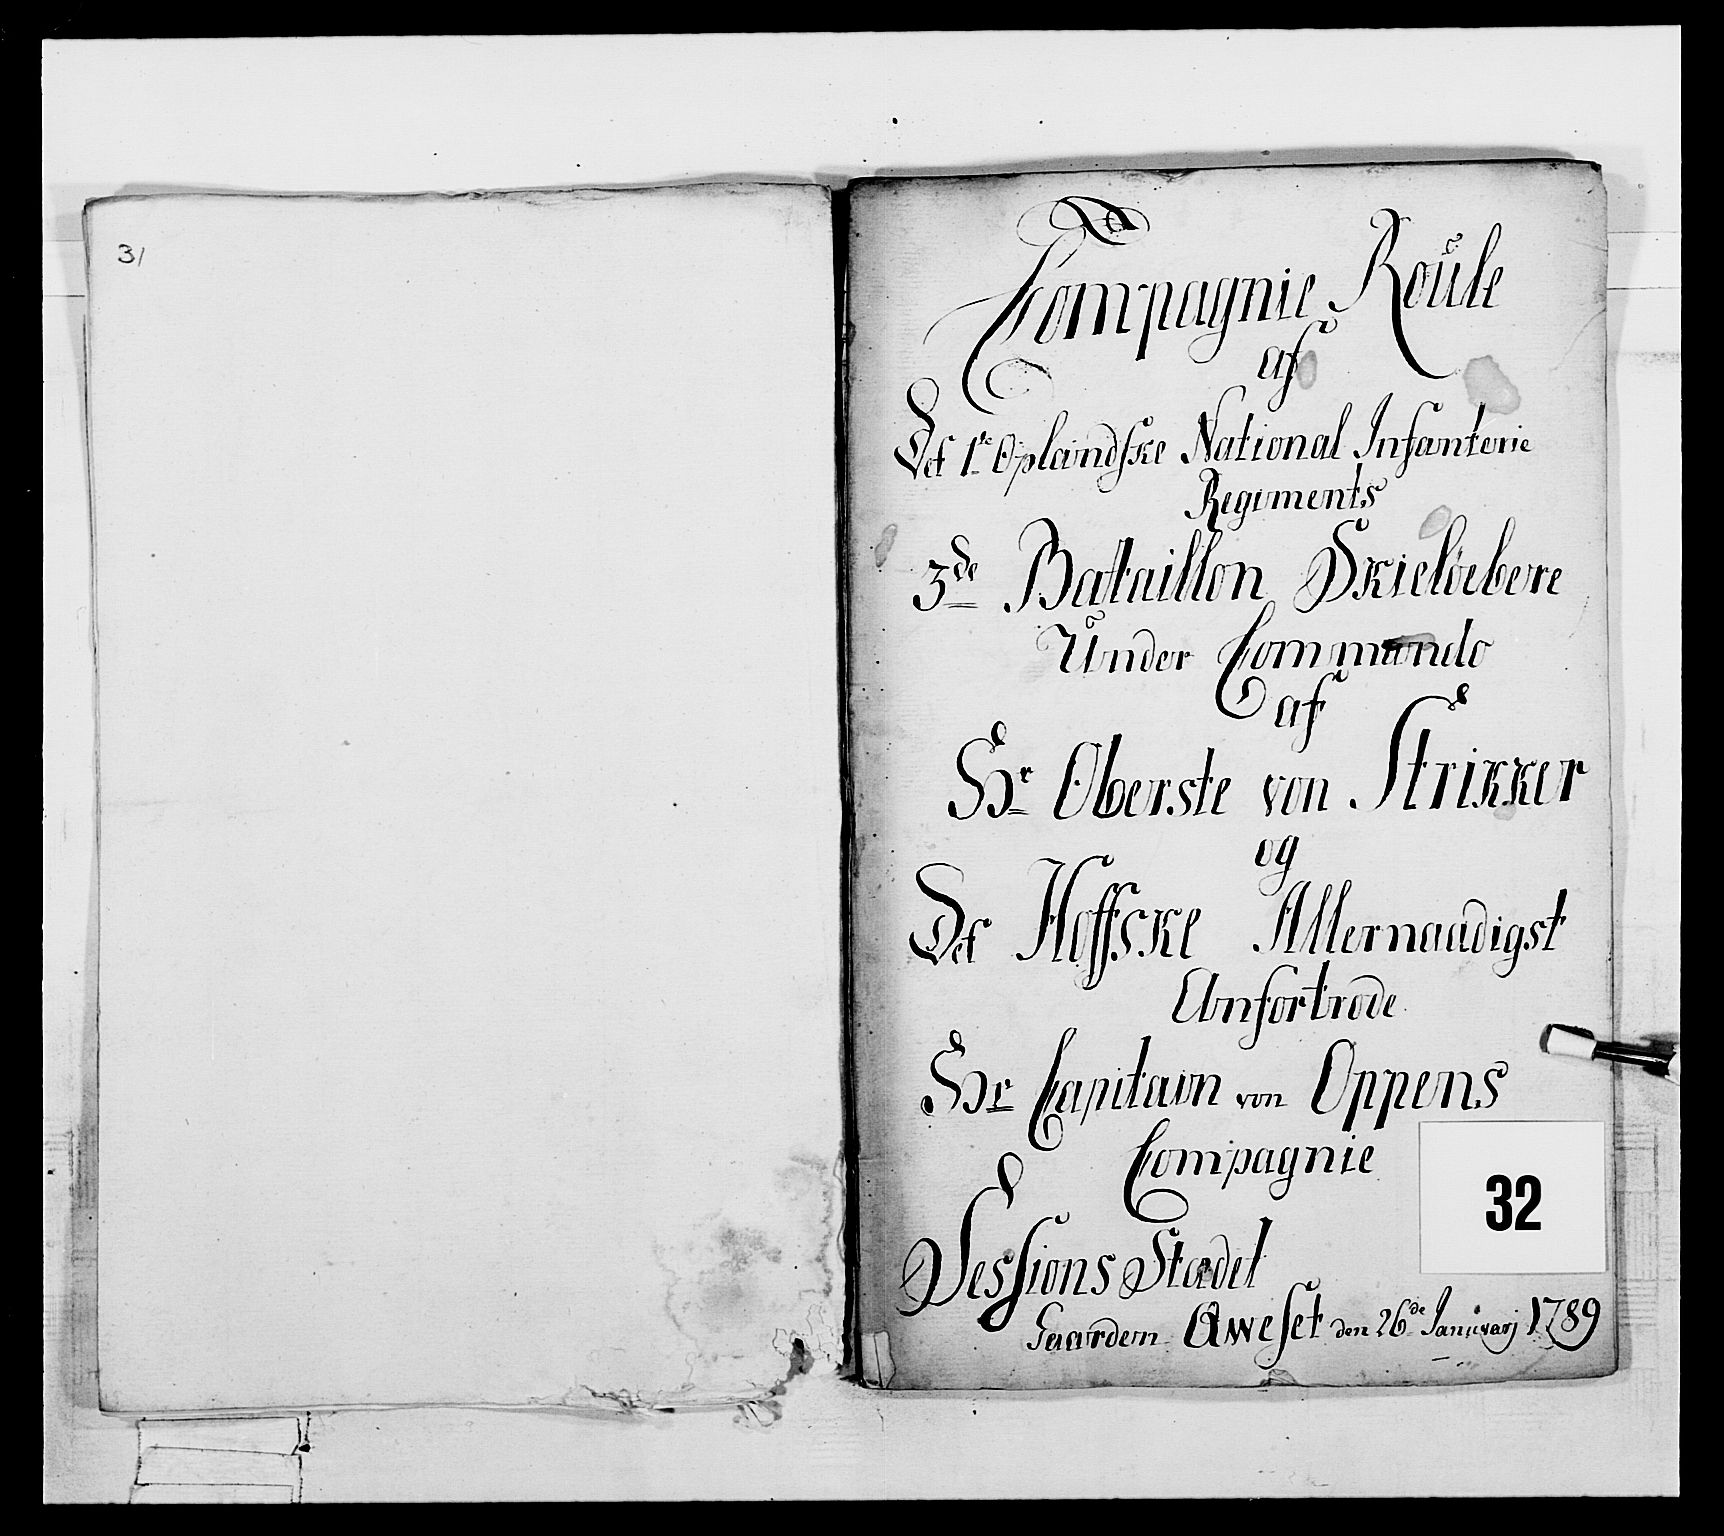 31
Compagnie Roule
af
Det 1te Oplandske National Infanterie
Regiments
3de Bataillon Skieldebere
Under Commando
af
Hr Oberste von Strikker
og
Det Hoffske Allernaadigst
Anfortrode
Hr Capitain von Oppens
Compagnie
32
Sessions Stædet
Gaarden Aweset den 26de Januarj 1789